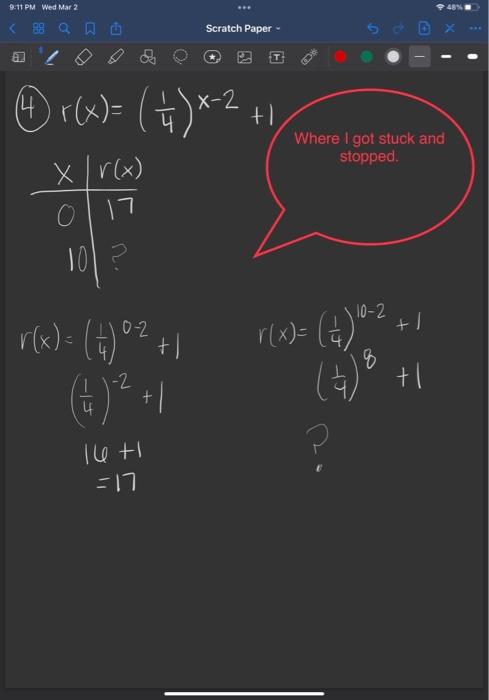 9:11 PM Wed Mar 2
48%
Scratch Paper
④ r(x)= (1/4)^x-2 +1
Where I got stuck and
stopped.
x | r(x)
0 | 17
10 | ?
r(x)= (1/4)^0-2 +1
(1/4)^-2 +1
16 +1
=17
r(x)= (1/4)^10-2 +1
(1/4)^8 +1
?